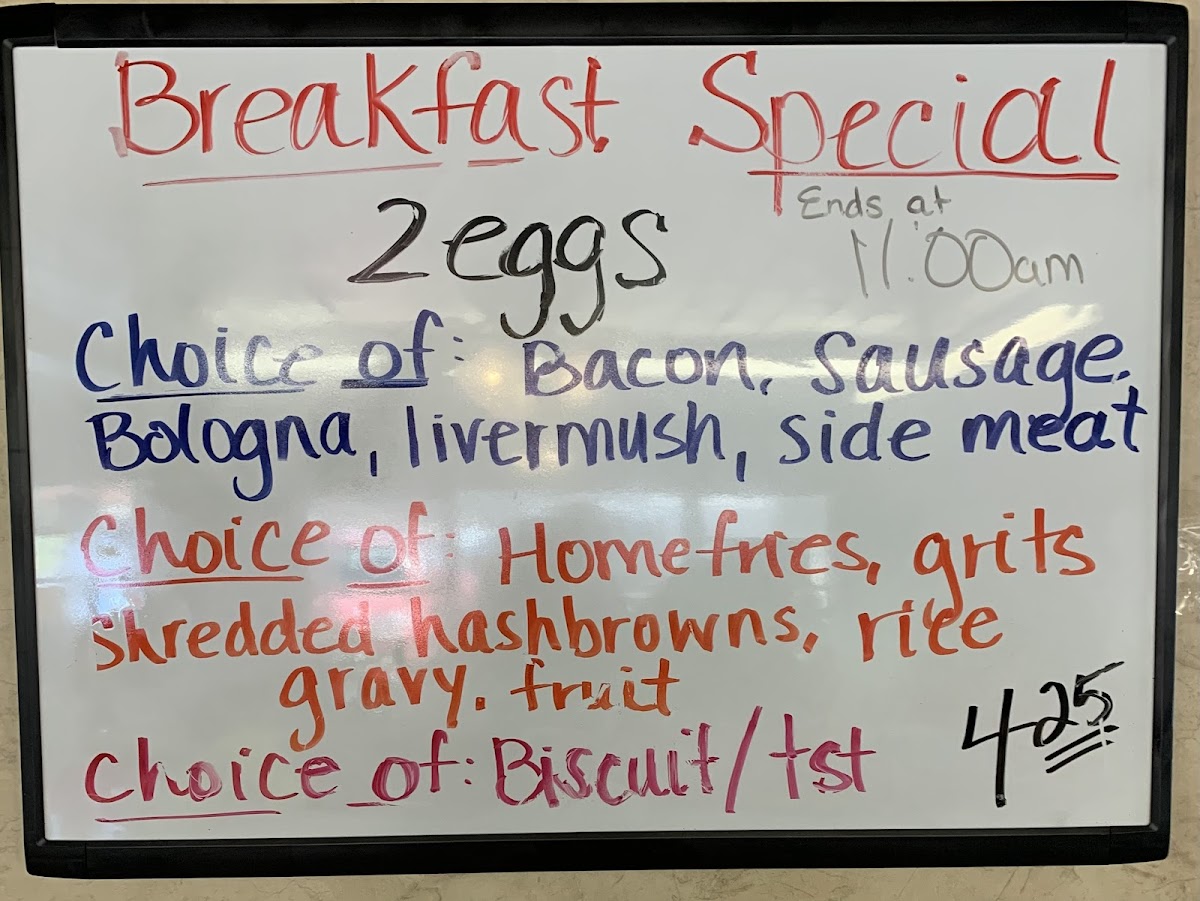 Breakfast Special
Ends at
11:00am
2 eggs
Choice of: Bacon, Sausage,
Bologna, livermush, side meat
Choice of: Homefries, grits
shredded hashbrowns, rice
gravy, fruit
4 25
Choice of: Biscuit/tst